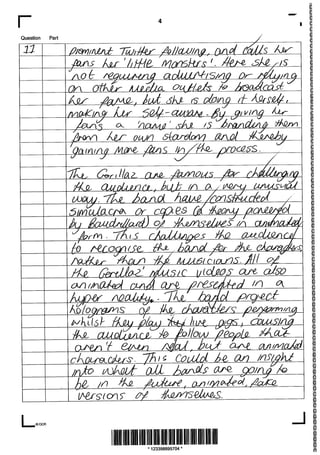 4
Question Part
11 prominent Twitter following, and calls her
fans her 'little monsters'. Here she is
not requiring advertising or relying
on other Media outlets to broadcast
her fame, but she is doing it herself,
making her self-aware. By giving her
fans a 'name' she is branding them
from her own stardom and thereby
gaining more fans in the process.
The Gorillaz are famous for challenging
the audience, but in a very unusual
way. The band have constructed
simulacra or copies (a theory pioneered
by Baudrillard) of themselves in animated
form. This challenges the audience
to recognise the band for the characters
rather than the musicians. All of
the Gorillaz' music videos are also
animated and are presented in a
hyper reality. The band project
holograms of the characters performing
whilst they play live gigs, causing
the audience to follow people that
aren't even real, but are animated
characters. This could be an insight
into what all bands are going to
be in the future, animated, fake
versions of themselves.